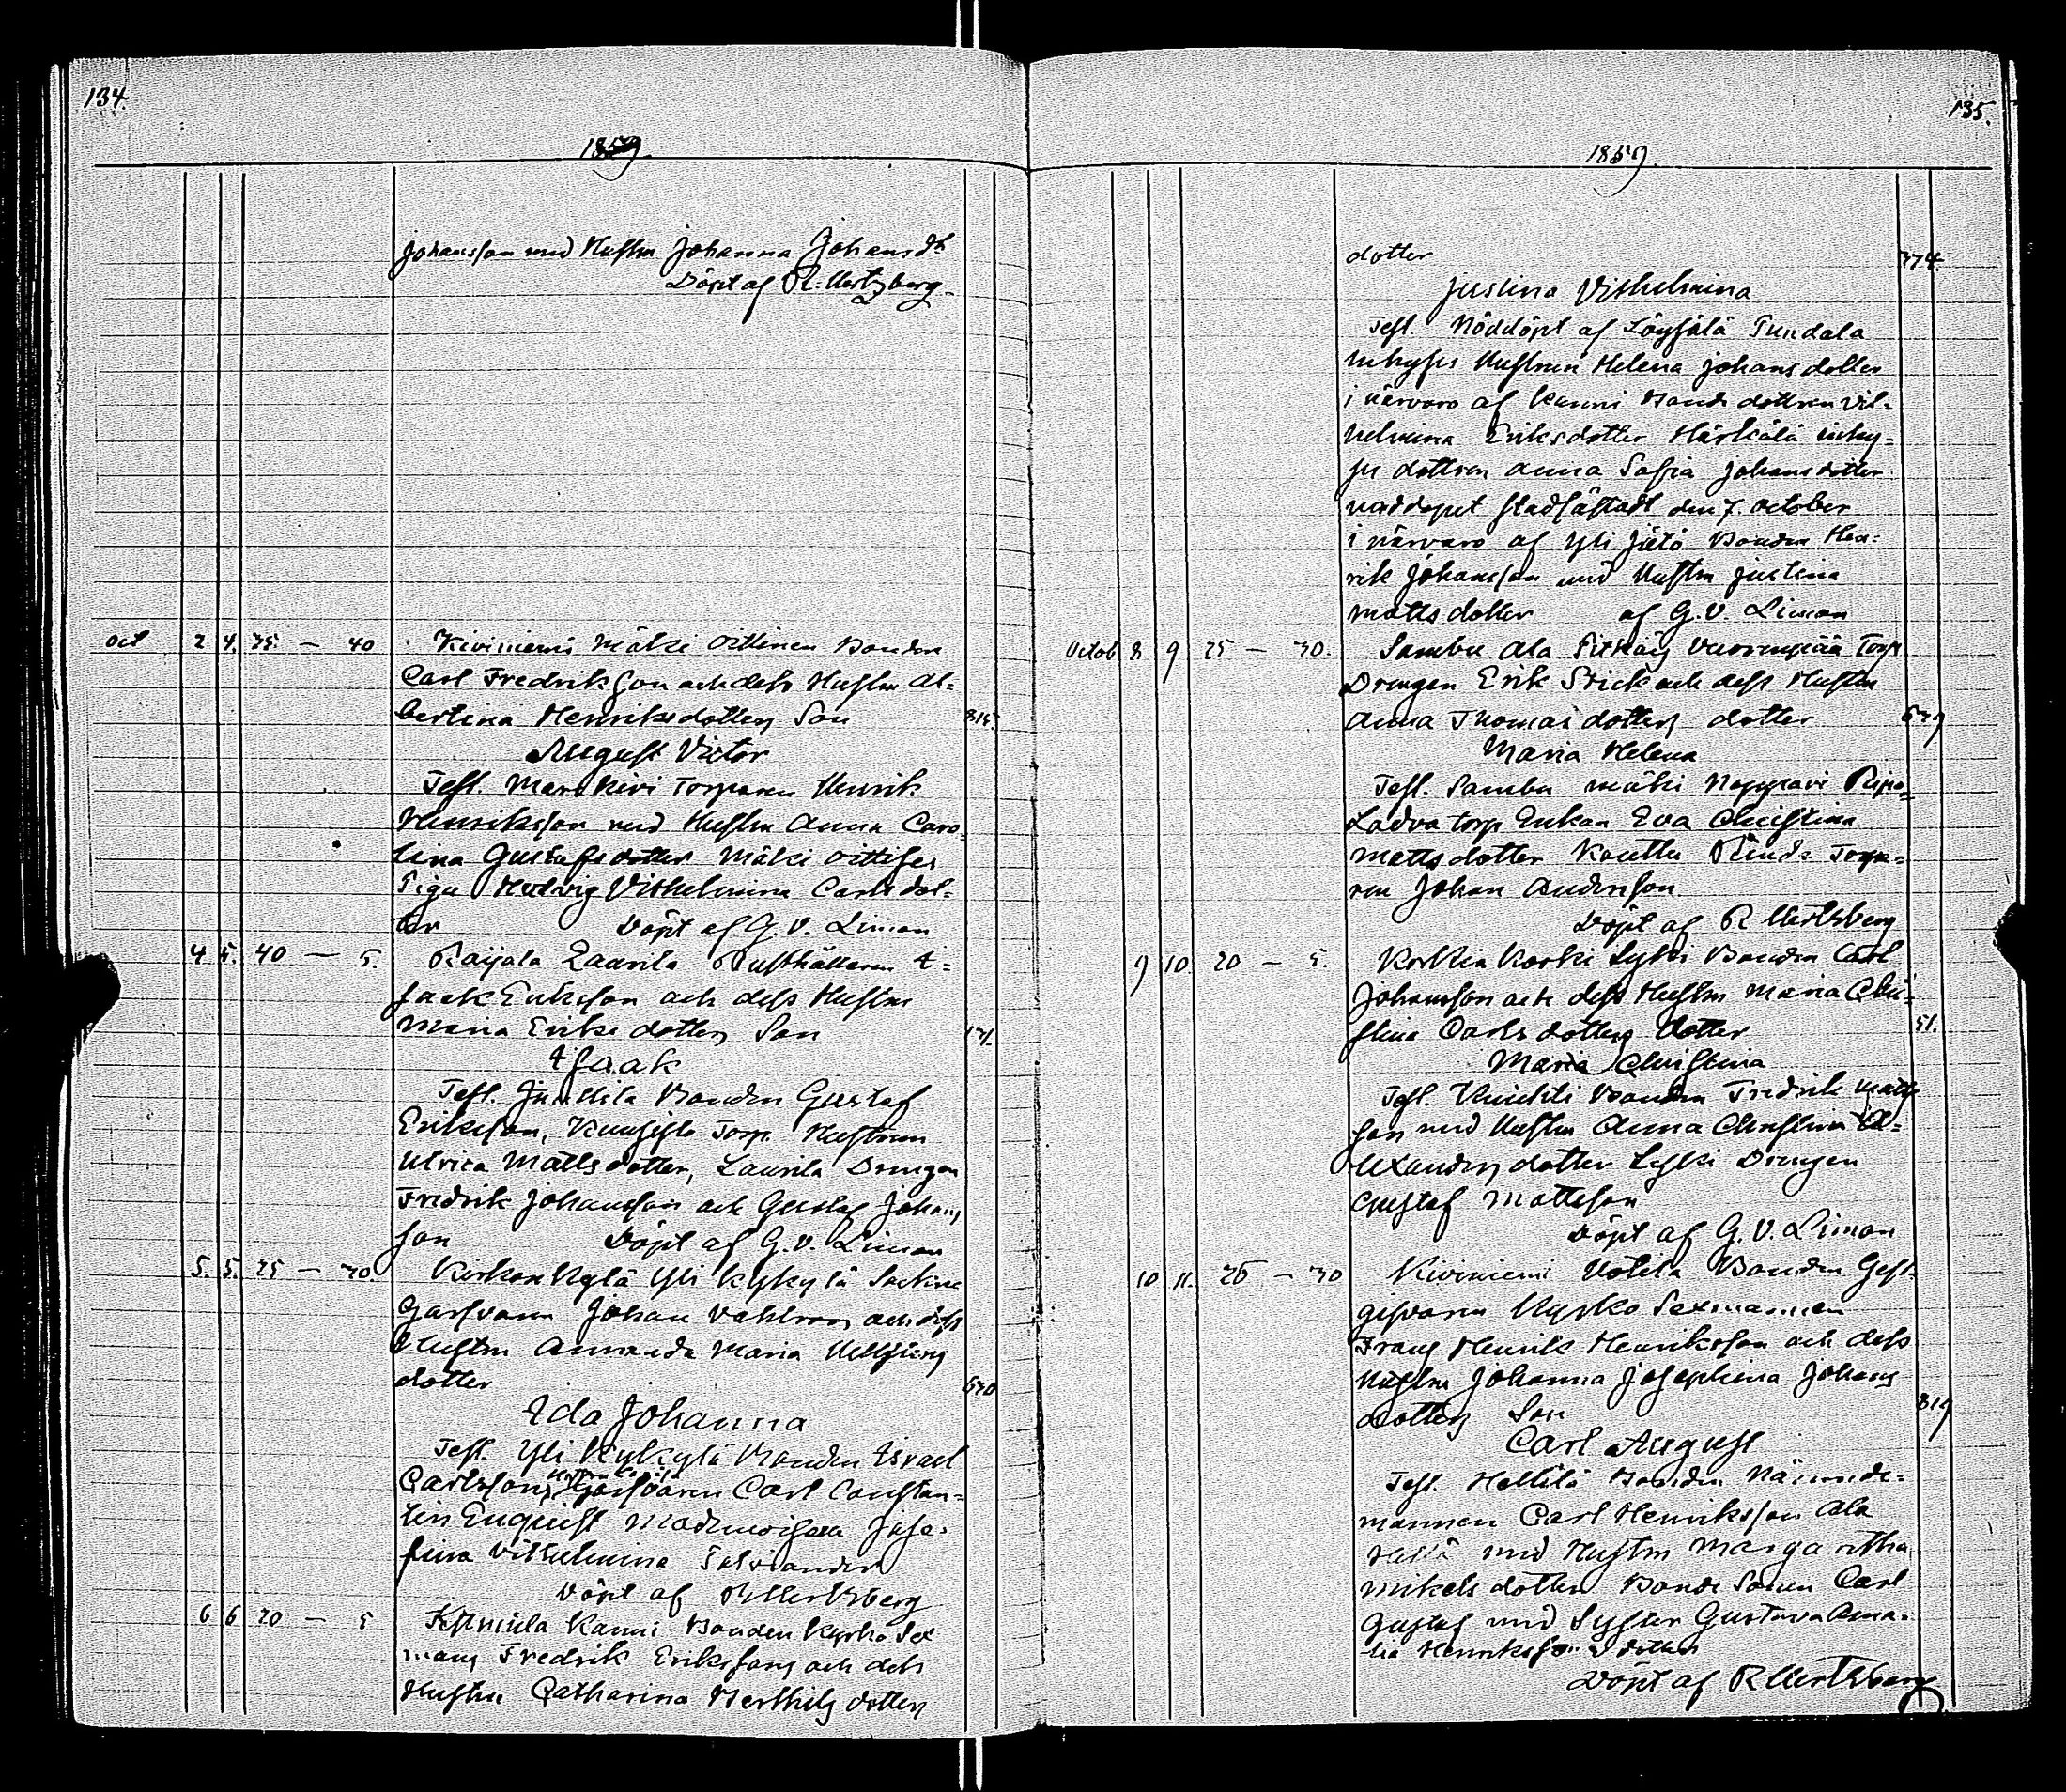 134.
1859.
Johansson med Hustru Johanna Johansdt
Döpt af R. Hertzberg.
Oct 2 4. 35. — 40 Kiviniemi Mäki Oittinen Bonden
Carl Fredriksson och dess Hustru Al=
bertina Henriksdotters Son 815.
August Victor
Test. Manskivi Torparen Henrik
Henriksson med Hustru Anna Caro=
lina Gustafsdotter Mäki Oittises
Piga Hedvig Vilhelmina Carlsdot=
ter Döpt af G. V. Liman
4 5. 40 — 5. Raijala Laurila Rusthållaren I=
saak Eriksson och dess Hustru
Maria Eriksdotters Son 171.
Isaak
Test. Junttila Bonden Gustaf
Eriksson, Torp. Hustrun
Ulrica Mattsdotter, Laurila Drengen
Fredrik Johansson och Gustaf Johans
son Döpt af G. V. Liman
5. 5. 25 — 30. Kirkonkylä Yli Kykylä Sockne
Garfvaren Johan och dess
Hustru Amanda Maria
dotter 630
Ida Johanna
Test. Yli Kykylä Bonden Israel
Carlsson, Garfvaren Carl Constan=
tin Enqvist Mademoisell Jose=
fina Vilhelmina
Döpt af R Hertzberg
6 6 20 — 5 Kanni Bonden Kyrko Sex
mans Fredrik Erikssons och dess
Hustru Catharina Berthils dotters
135.
1859.
dotter 374.
Justina Vilhelmina
Test. Nöddöpt af Löysälä Tundala
Inhyses Hustrun Helena Johansdotter
i närvaro af Kanni Bonde dottren Vil=
helmina Eriksdotter Härkälä inhy=
ses dottren Anna Sofia Johansdotter
noddopet stadfästadt den 7. October
i närvaro af Yli Bonden Hen=
rik Johansson med Hustru Justina
Mattsdotter af G. V. Liman
Octob 8 9 25 — 30. Sambu Ala Vuorenpää Torp
Drengen Erik Stick och dess Hustru
Anna Thomasdotters dotter 679
Maria Helena
Test. Sambu mäki
Ladva torp Enkan Eva Christina
Mattsdotter Kouttu Torpa=
ren Johan Andersson
Döpt af R Hertzberg
9 10. 20 — 5. Korkia Koski Bonden Carl
Johansson och dess Hustru Maria Chri=
stina Carlsdotters dotter 51.
Maria Christina
Test. Bonden Fredrik Matts
son med Hustru Anna Christina A=
lexanders dotter Drengen
Gustaf Mattsson
Döpt af G. V. Liman
10 11. 25 — 30 Kiviniemi Uotila Bonden Gest=
gifvaren Kyrko Sexmannen
Frans Henrik Henriksson och dess
Hustru Johanna Josephina Johans
dotters Son 819
Carl August
Test. Hellilä Bonden Nämnde=
mannen Carl Henriksson Ala
med Hustru Margaretha
Mikelsdotter Bonde Sonen Carl
Gustaf med Syster Gustava Ama=
lia Henriksson dotter
Döpt af R Hertzberg